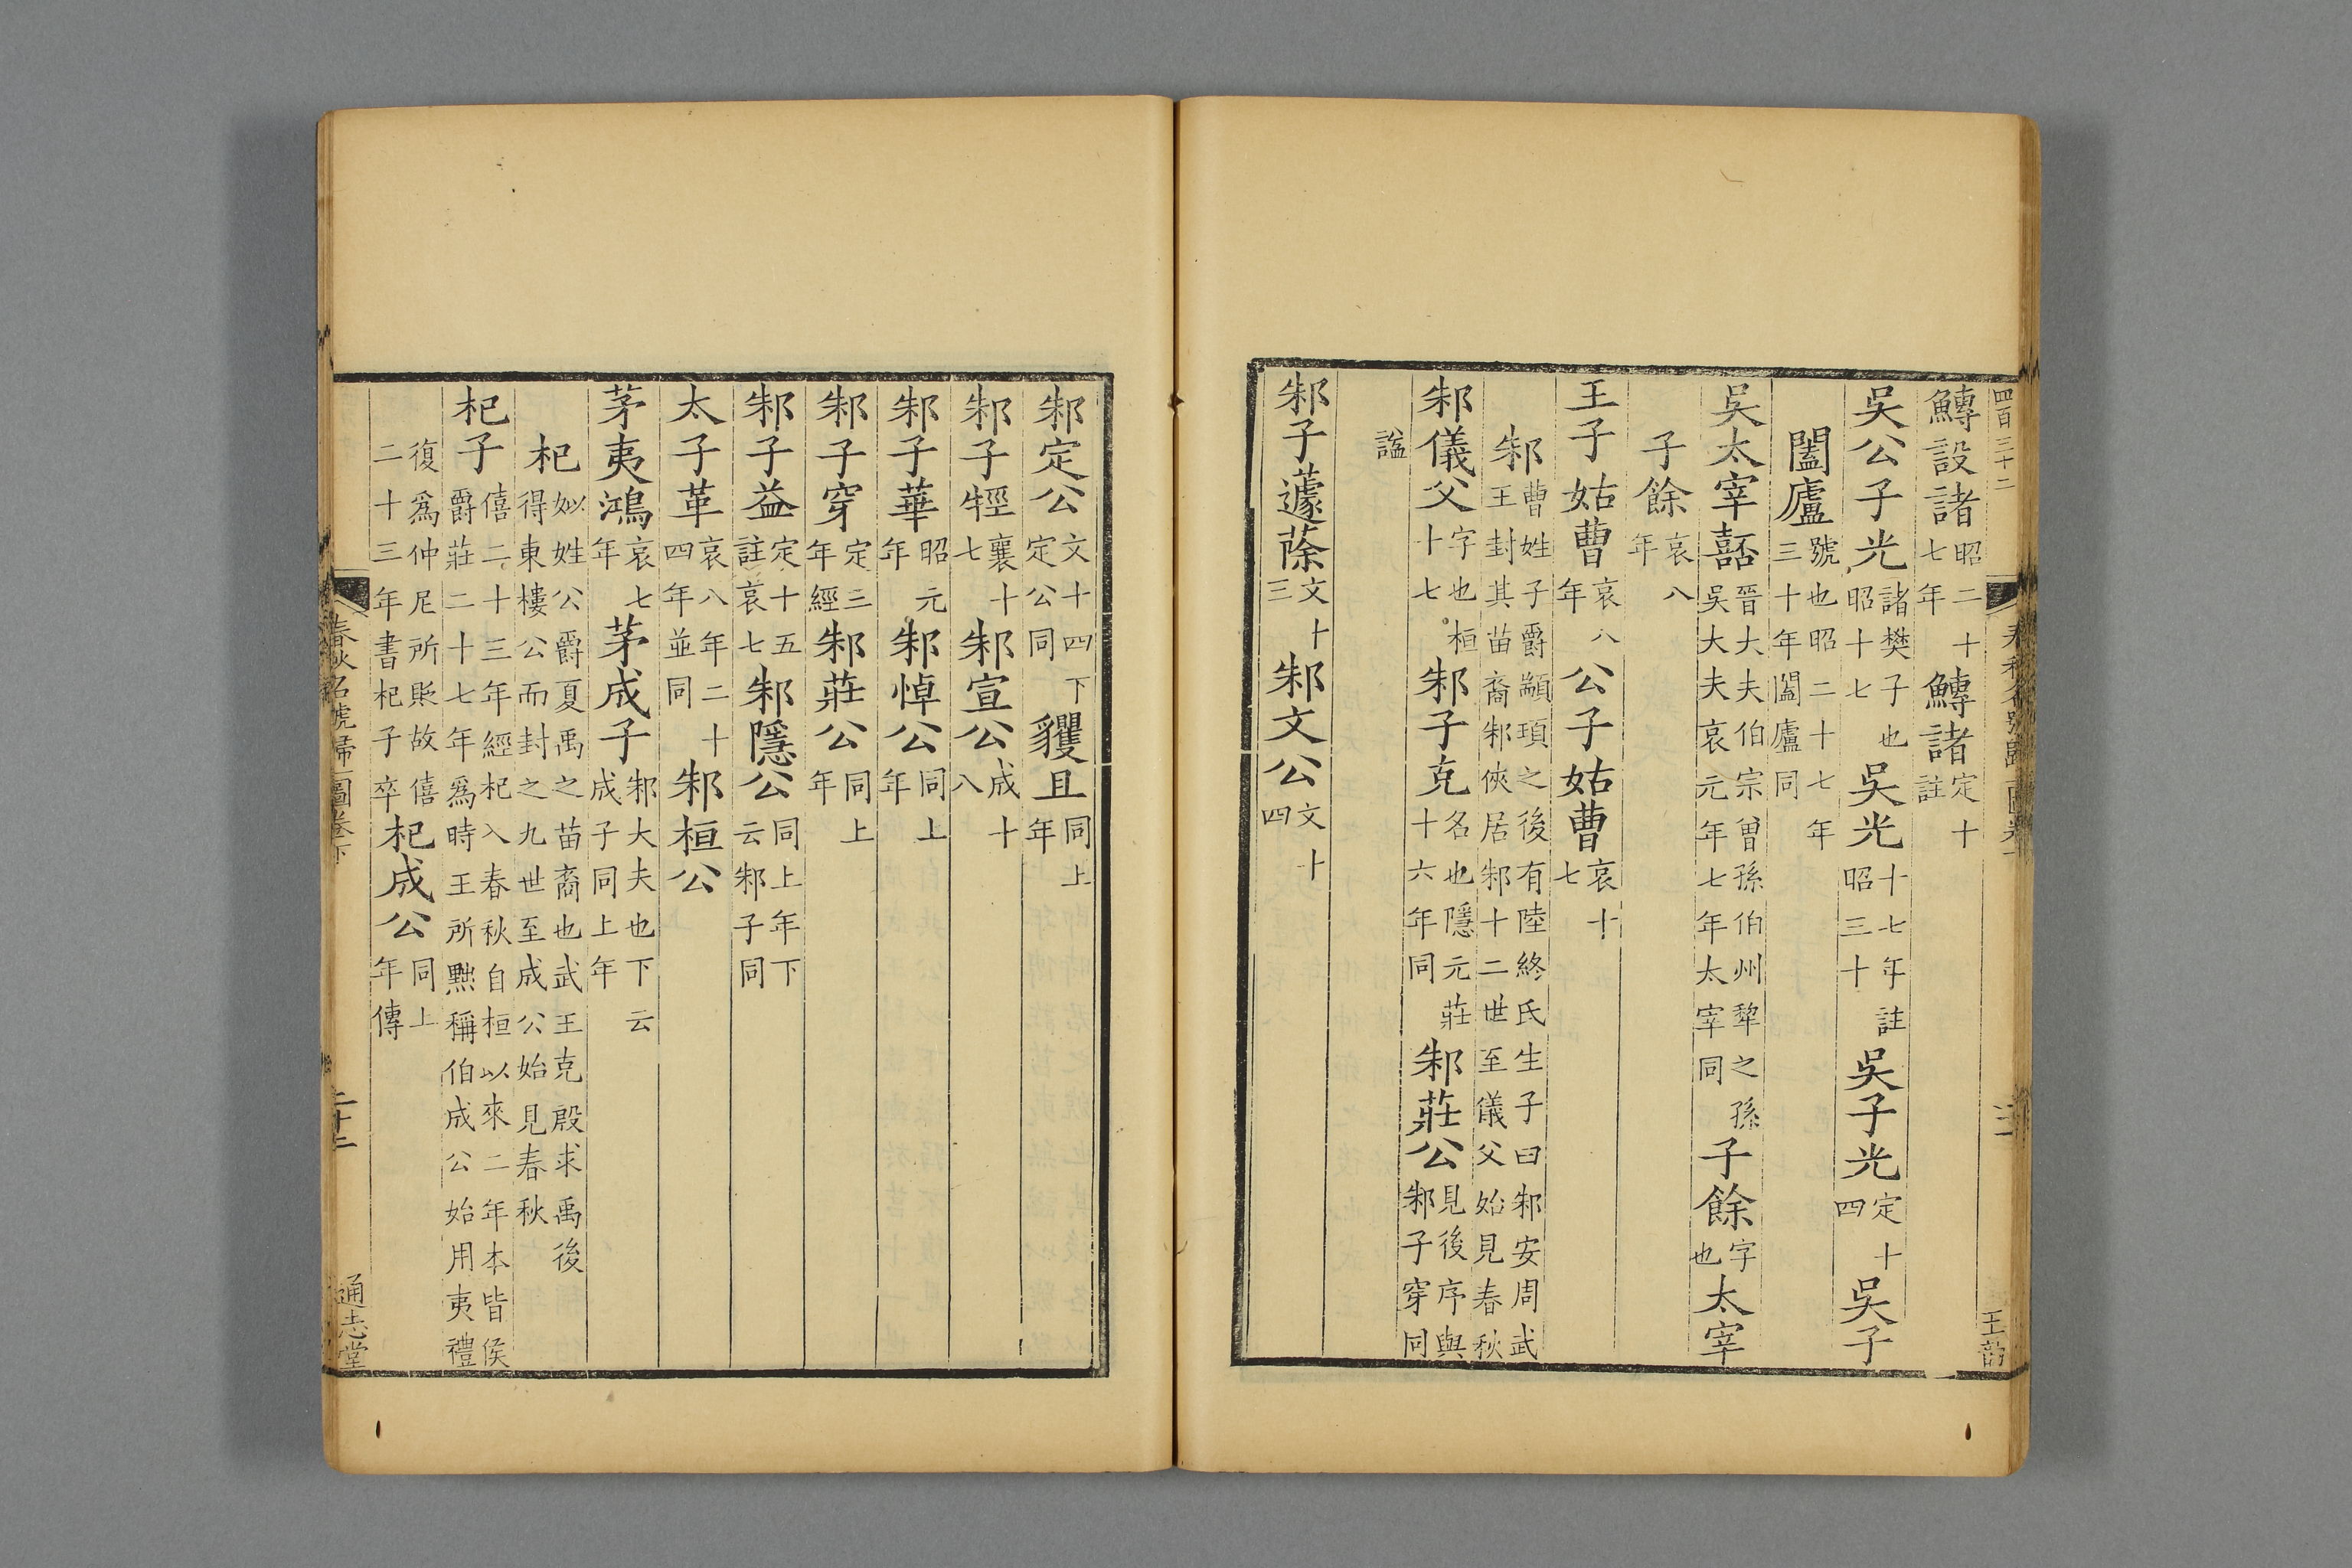 四百三十二
鱄設諸昭二十七年鱄諸定十註
吳公子光諸樊子也昭十七吳光十七年註昭三十吳子光定十四吳子
闔廬號也昭二十七年三十年闔廬同
吳太宰嚭晉大夫伯宗曾孫伯州犂之孫吳大夫哀元年七年太宰同子餘字也太宰
子餘哀八年
王子姑曹哀八年公子姑曹哀十七
邾曹姓子爵顓頊之後有陸終氏生子曰邾安周武王封其苗裔邾俠居邾十二世至儀父始見春秋
邾儀父字也桓十七邾子克名也隱元莊十六年同邾莊公見後序與邾子穿同
諡
邾子蘧蒢文十三邾文公文十四
邾定公文十四下定公同貜且同上年
邾子牼襄十七邾宣公成十八
邾子華昭元年邾悼公同上年
邾子穿定三年經邾莊公同上年
邾子益定十五註哀七邾隱公同上年下云邾子同
太子革哀八年二十四年並同邾桓公
茅夷鴻哀七年茅成子邾大夫也下云成子同上年
杞姒姓公爵夏禹之苗裔也武王克殷求禹後得東樓公而封之九世至成公始見春秋
杞子僖二十三年經杞入春秋自桓以來二年本皆侯爵莊二十七年爲時王所黜稱伯成公始用夷禮
復爲仲尼所貶故僖二十三年書杞子卒杞成公同上年傳
春秋名號歸一圖卷下
二十二
通志堂